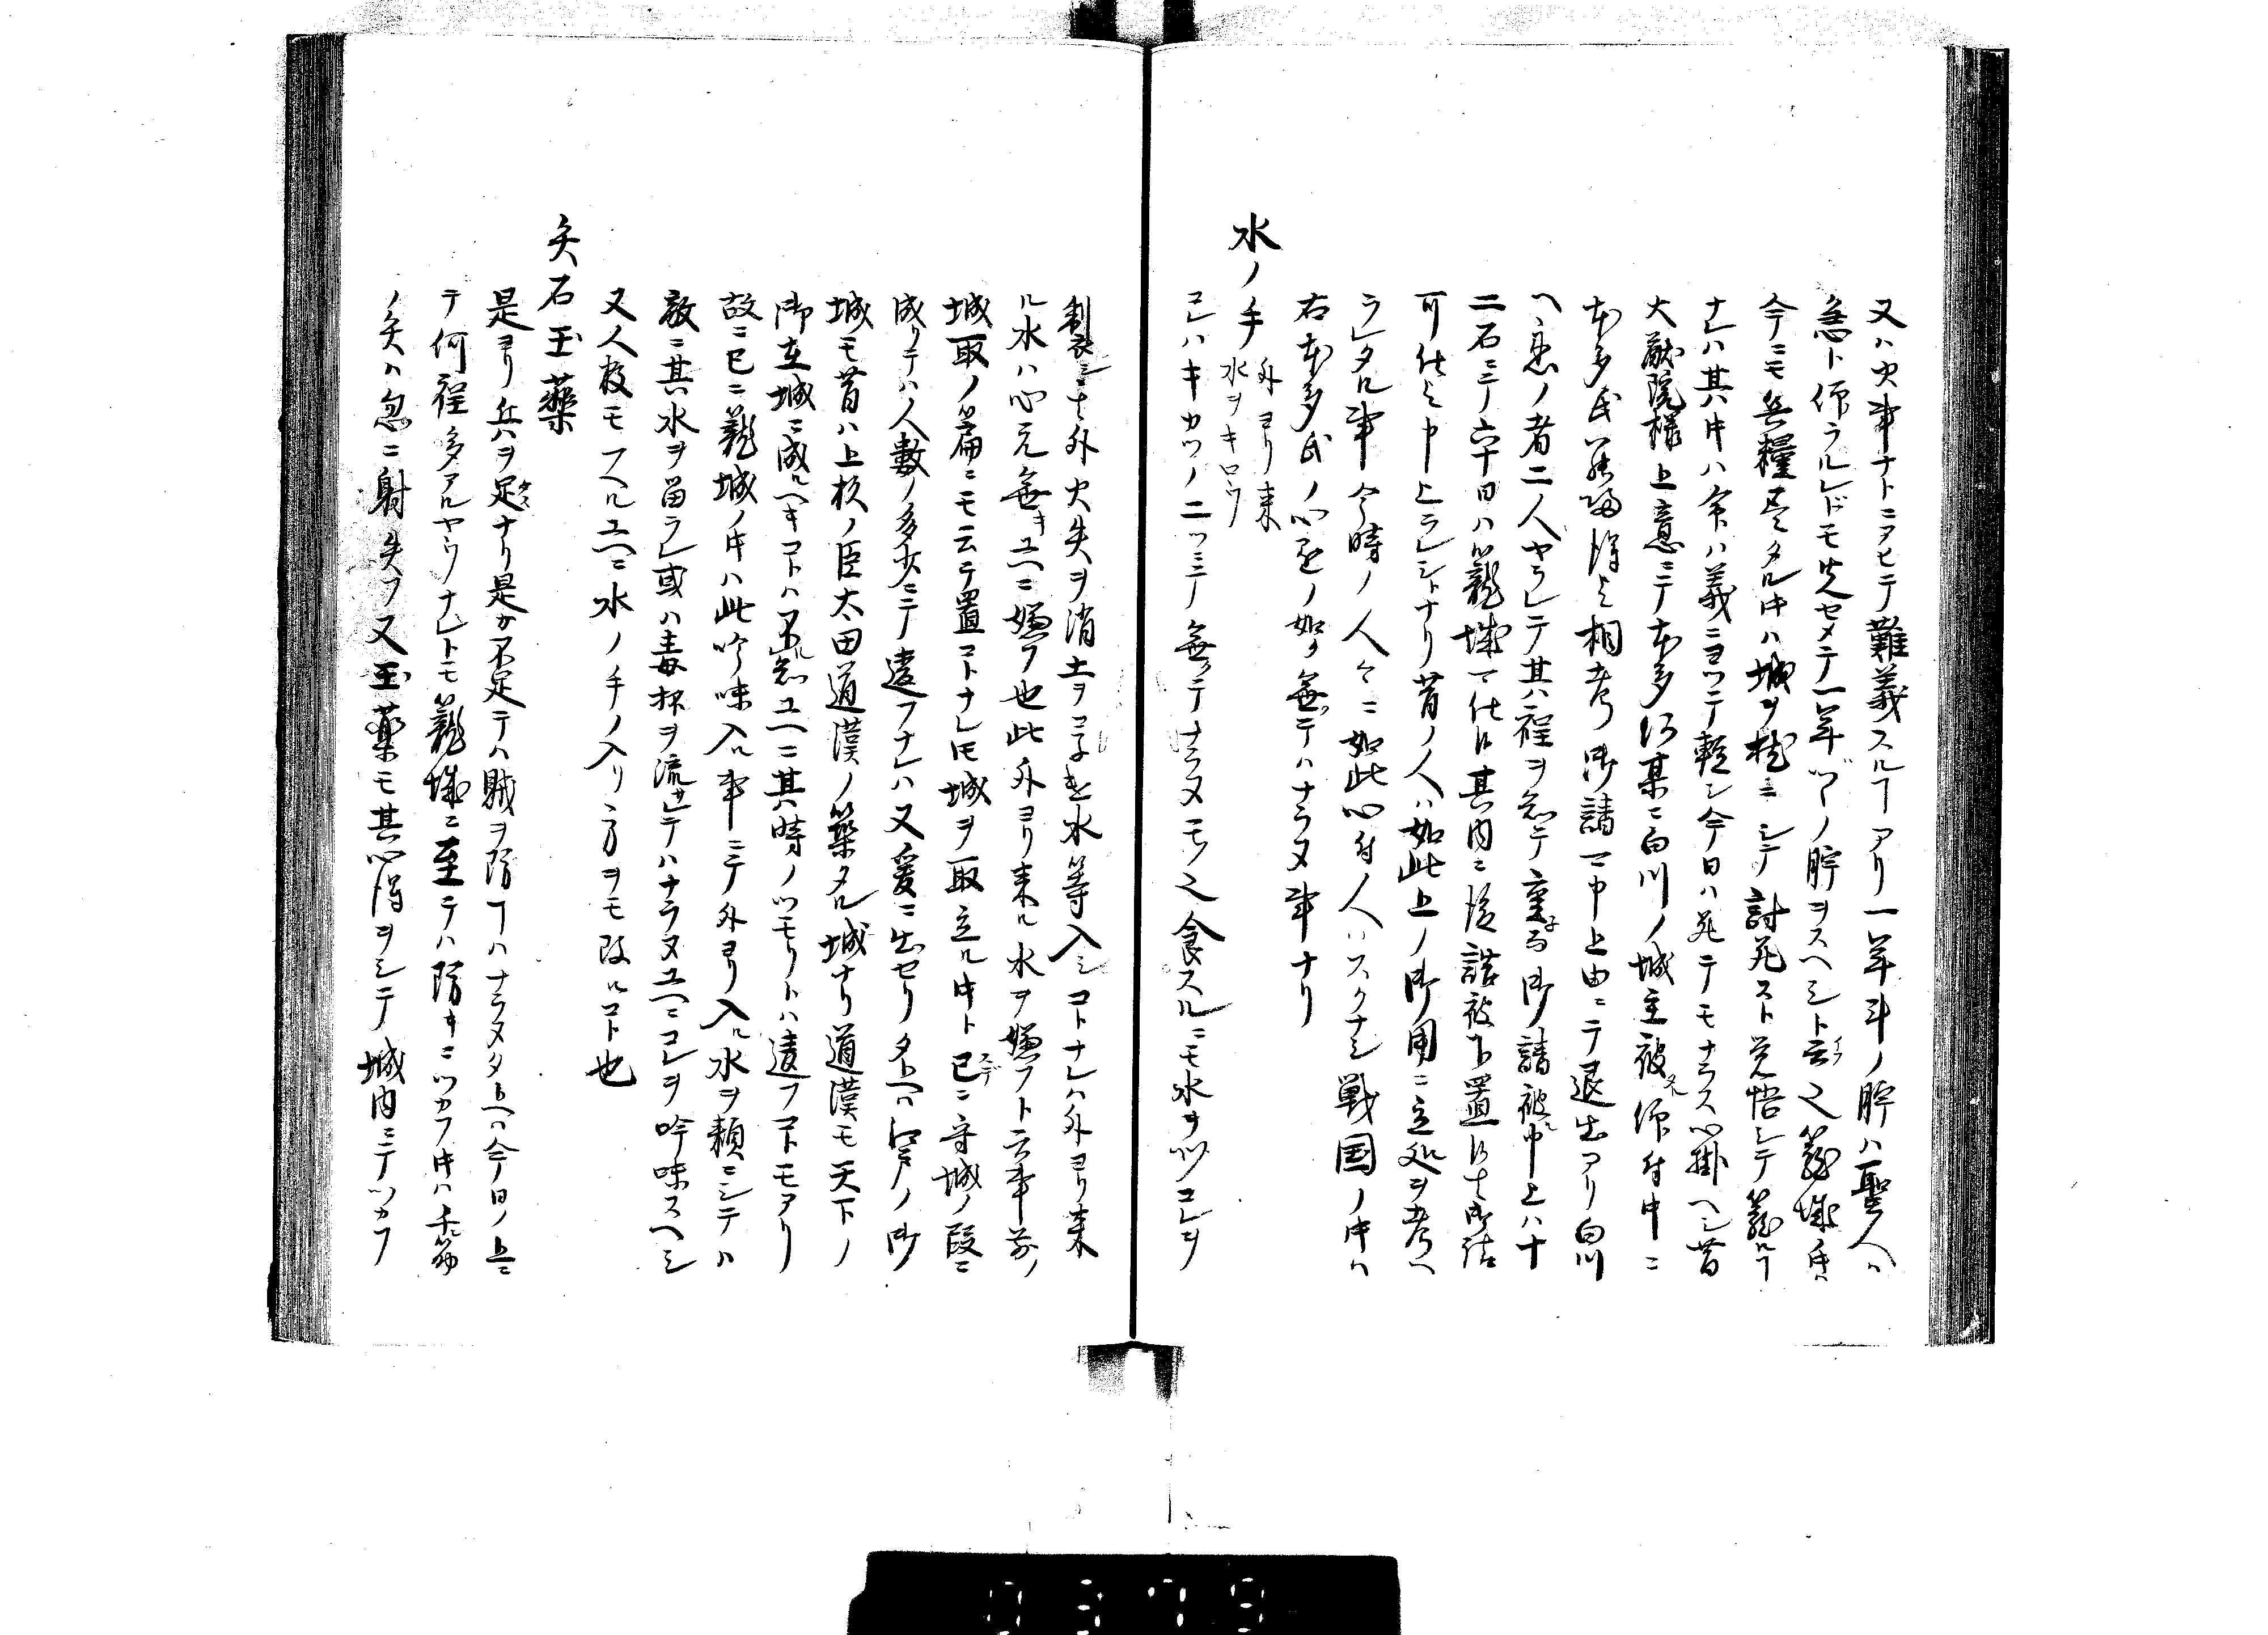 又ハ火事ナトニアヒテ難義スルヿアリ一年斗ノ貯ハ聖人ハ
急ト仰ラルレドモ先セメテ一年ヅヽノ貯ヲスヘシト云之籠城
今ニモ兵糧尽タル時ハ城ヲ枕ニシテ討死スト覚悟シテ籠ルヿ
ナレハ其時ハ命ハ義ニヨツテ軽シ今日ハ死テモナラス心掛ヘシ昔
大猷院様上意ニテ本多何某ニ白川ノ城主被仰付時ニ
本多氏相考御請可申上由ニテ退出アリ白川
ヘ忍ノ者二人ヤラレテ其程ヲ御請被申上ハ十
二石ニテ六十日ハ籠城可仕候其内ニ後詰被下置候
可仕ト申上ラレシトナリ昔ノ人ハ如此上ノ御用ニ立処ヲ考ヘ
ラレタル事今時ノ人々ニ如此心付人ハスクナシ戦国ノ時ハ
右本多氏ノ心ノ如ク無テハナラヌ事ナリ
水ノ手 外ヨリ来水ヲキロウ
コレハキカツノ二ツニテ無テナラヌモノ之食スルニモ水ヲ以コレヲ
製シ其外火失ヲ消土ヲコネ水等入シコトナレハ外ヨリ来
ル水ハ心元無キユヘニ嫌フ也此外ヨリ来ル水ヲ嫌フト云事前ノ
城取ノ篇ニモ云テ置コトナレ𪜈城ヲ取立ル時ト已ニ守城ノ段ニ
成リテハ人数ノ多少ニテ違フナレハ又爰ニ出セリタトヘハ江戸ノ御
城モ昔ハ上杉ノ臣太田道漢ノ築タル城ナリ道漢モ天下ノ
御在城ニ成ルヘキコトハ不知ユヘニ其時ノツモリトハ違フコトモアリ
故ニ已ニ籠城ノ時ハ此吟味入ル事ニテ外ヨリ入ル水ヲ頼ニシテハ
敵ニ其水ヲ留ラレ或ハ毒杯ヲ流サレテハナラヌユヘニコレヲ吟味スヘシ
又人数モフヘルユヘニ水ノ手ノ入リ方ヲモ改ルコト也
矢石玉薬
是ヨリ兵ヲ足ナリ是カ不足テハ賊ヲ防フヿハナラヌタトヘハ今日ノ上ニ
テ何程多アルヤウナレトモ籠城ニ至テハ防キニツカフ時ハ千筋
ノ矢ハ忽ニ射失フ又玉薬モ其心得ヲシテ城内ニテツカフ